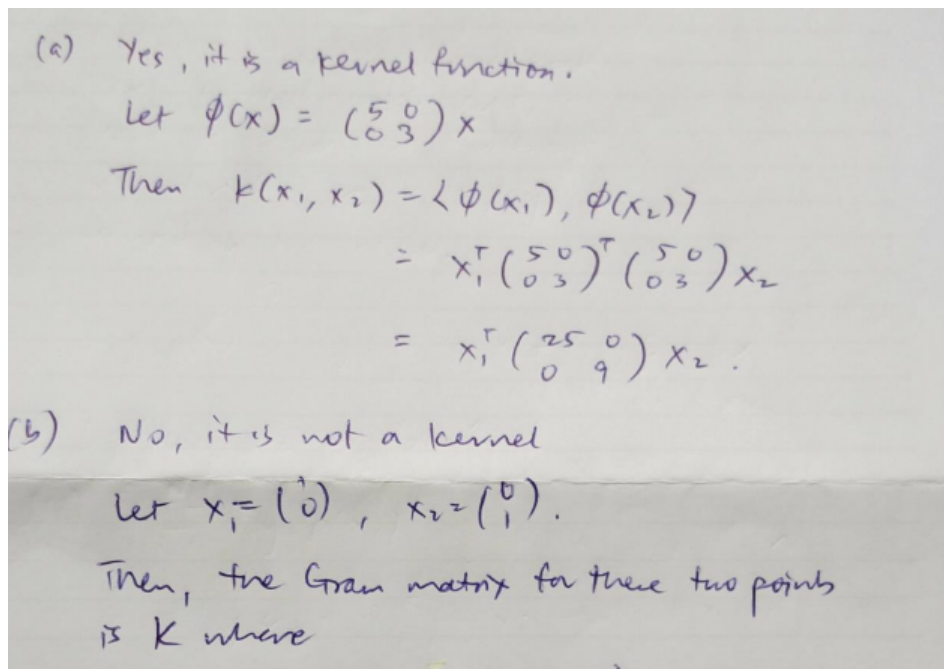 (a) Yes, it is a kernel function.
Let φ(x) = (5 0 0 3) x
Then k(x₁, x₂) = ⟨φ(x₁), φ(x₂)⟩
= x₁ᵀ (5 0 0 3)ᵀ (5 0 0 3) x₂
= x₁ᵀ (25 0 0 9) x₂.
(b) No, it is not a kernel
Let x₁ = (1 0), x₂ = (0 1).
Then, the Gram matrix for these two points
is K where